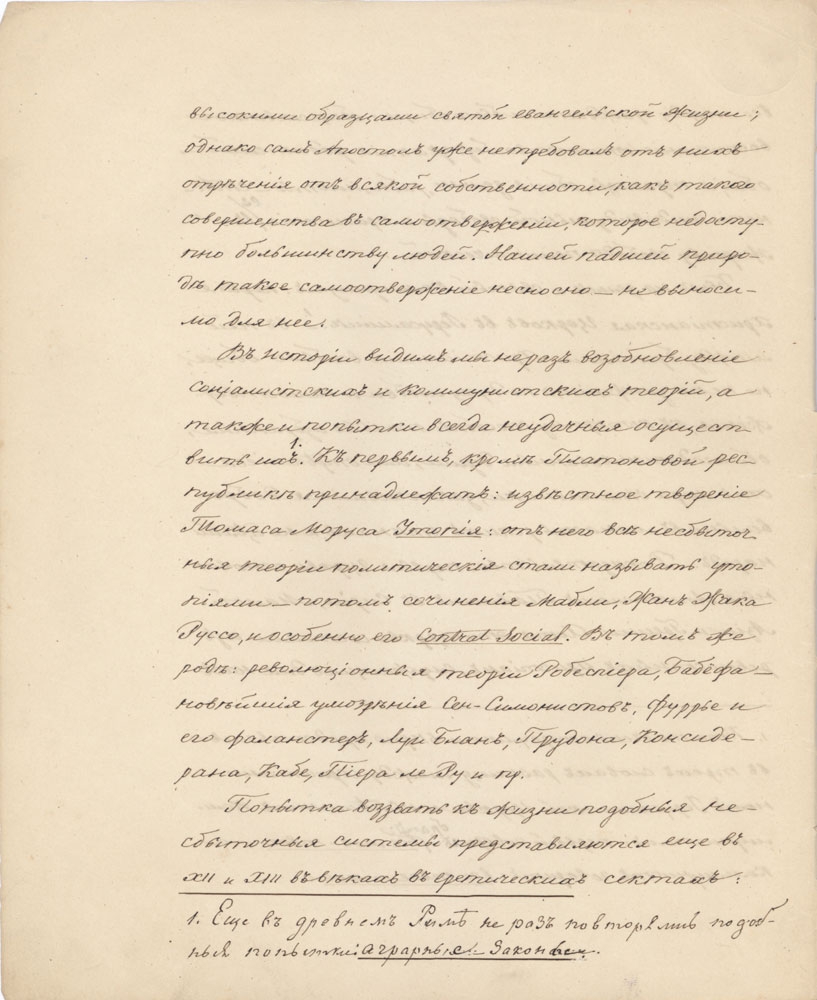 высокими образцами святой евангельской жизни;
однако самъ Апостолъ уже не требовалъ отъ нихъ
отрѣченія отъ всякой собственности, какъ такого
совершенства въ самоотверженіи, которое недосту-
пно большинству людей. Нашей падшей приро-
дѣ такое самоотверженіе несносно — не выноси-
мо для нее.
Въ исторіи видимъ мы не разъ возобновленіе
соціалистскихъ и коммунистскихъ теорій, а
также и попытки всегда неудачныя осущест-
вить ихъ.1. Къ первымъ, кромѣ Платоновой рес-
публикѣ принадлежатъ: извѣстное твореніе
Томаса Моруса Утопія: отъ него всѣ несбыточ-
ныя теоріи политическія стали называть уто-
піями — потомъ сочиненія Мабли, Жанъ Жака
Руссо, и особенно его Contrat Social. Въ томъ же
родѣ: революціонныя теоріи Робеспіера, Бабёфа —
новѣйшія умозрѣнія Сен-Симонистовъ, Фурръе и
его фаланстеръ, Луи Бланъ, Прудона, Консиде-
рана, Кабе, Піера ле Ру и пр.
Попытка воззвать къ жизни подобныя не-
сбыточныя системы представляются еще въ
XII и XIII въ вѣкахъ въ еретическихъ сектахъ:
1. Еще въ древнемъ Римѣ не разъ повторялись подоб-
ныя попытки: аграрные законы.